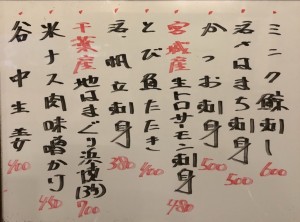 ミンク鯨刺し 600
君へはまち刺し 500
かつお刺身 500
宮城産 生トロサーモン刺身 480
とび魚たたき 400
君帆立刺身 380
千葉産 地はまぐり浜焼(3ヶ) 700
米ナス肉味噌かけ 480
谷中生姜 400